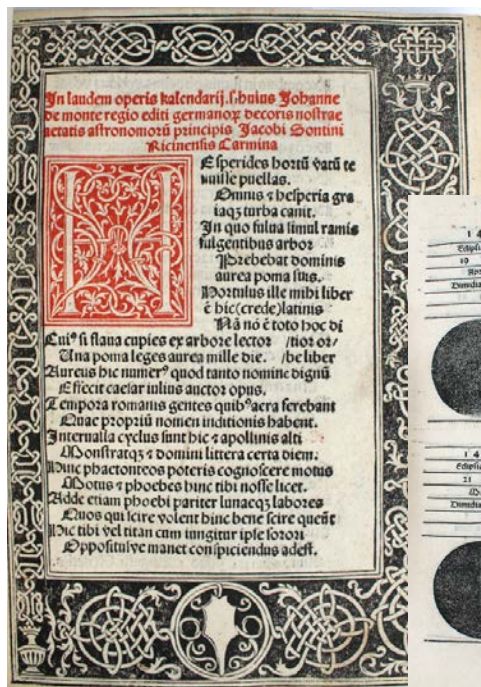 In laudem operis kalendarij. s. huius Johanne
de monte regio editi germanoꝝ decoris nostrae
aetatis astronomorū principis Jacobi Sontini
Ricinensis Carmina
Esperides hortū vatū te
nuisse puellas.
Omnis ⁊ hesperia gra
iaqꝫ turba canit.
In quo fulua simul ramis
fulgentibus arbor
Prebebat dominis
aurea poma suis.
Hortulus ille mihi liber
ē hic (crede) latinis
Nā nō ē toto hoc di
Cuiꝰ si flaua cupies ex arbore lector /tior or/
Una poma leges aurea mille die. /be liber
Aureus hic numerꝰ quod tanto nomine dignū
Effecit caesar iulius auctor opus.
Tempora romanis gentes quibꝰ aera ferebant
Quae propriū nomen inditionis habent.
Interualla cyclus sunt hic ⁊ apollinis alti
Monstratqꝫ ⁊ domini littera certa diem.
Hinc phaetonteos poteris cognoscere motus
Motus ⁊ phoebes hinc tibi nosse licet.
Adde etiam phoebi pariter lunaeqꝫ labores
Quos qui scire volent hinc bene scire queūt
Hic tibi vel titan cum iungitur ipse sorori
Oppositusve manet conspiciendus adest.
1 4
Eclipsis
19
Dimidia
1 4
Eclipsis
21
Dimidia